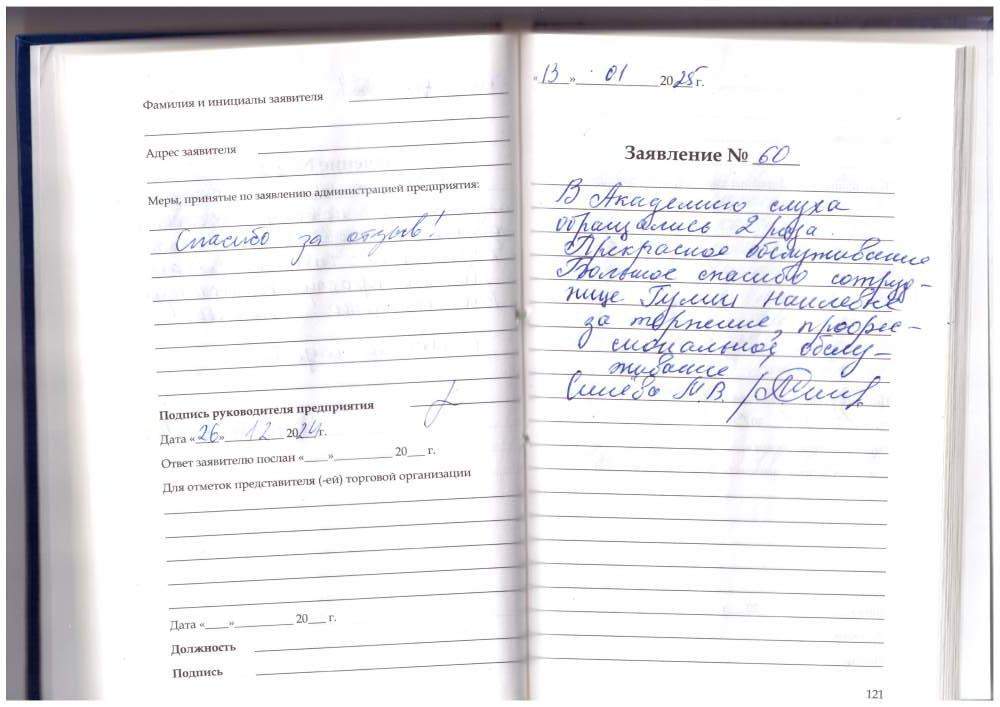 Фамилия и инициалы заявителя
Адрес заявителя
Меры, принятые по заявлению администрацией предприятия:
Спасибо за отзыв!
Подпись руководителя предприятия
Дата «26» 12 2024г.
Ответ заявителю послан «____»__________ 20___ г.
Для отметок представителя (-ей) торговой организации
Дата «____»__________ 20___ г.
Должность
Подпись
«13» 01 2025г.
Заявление № 60
В Академию слуха
обращались 2 раза.
Прекрасное обслуживание
Большое спасибо сотруд-
нице Гулии Наилевне
за терпение, профес-
сиональное обслу-
живание
М.В.
121